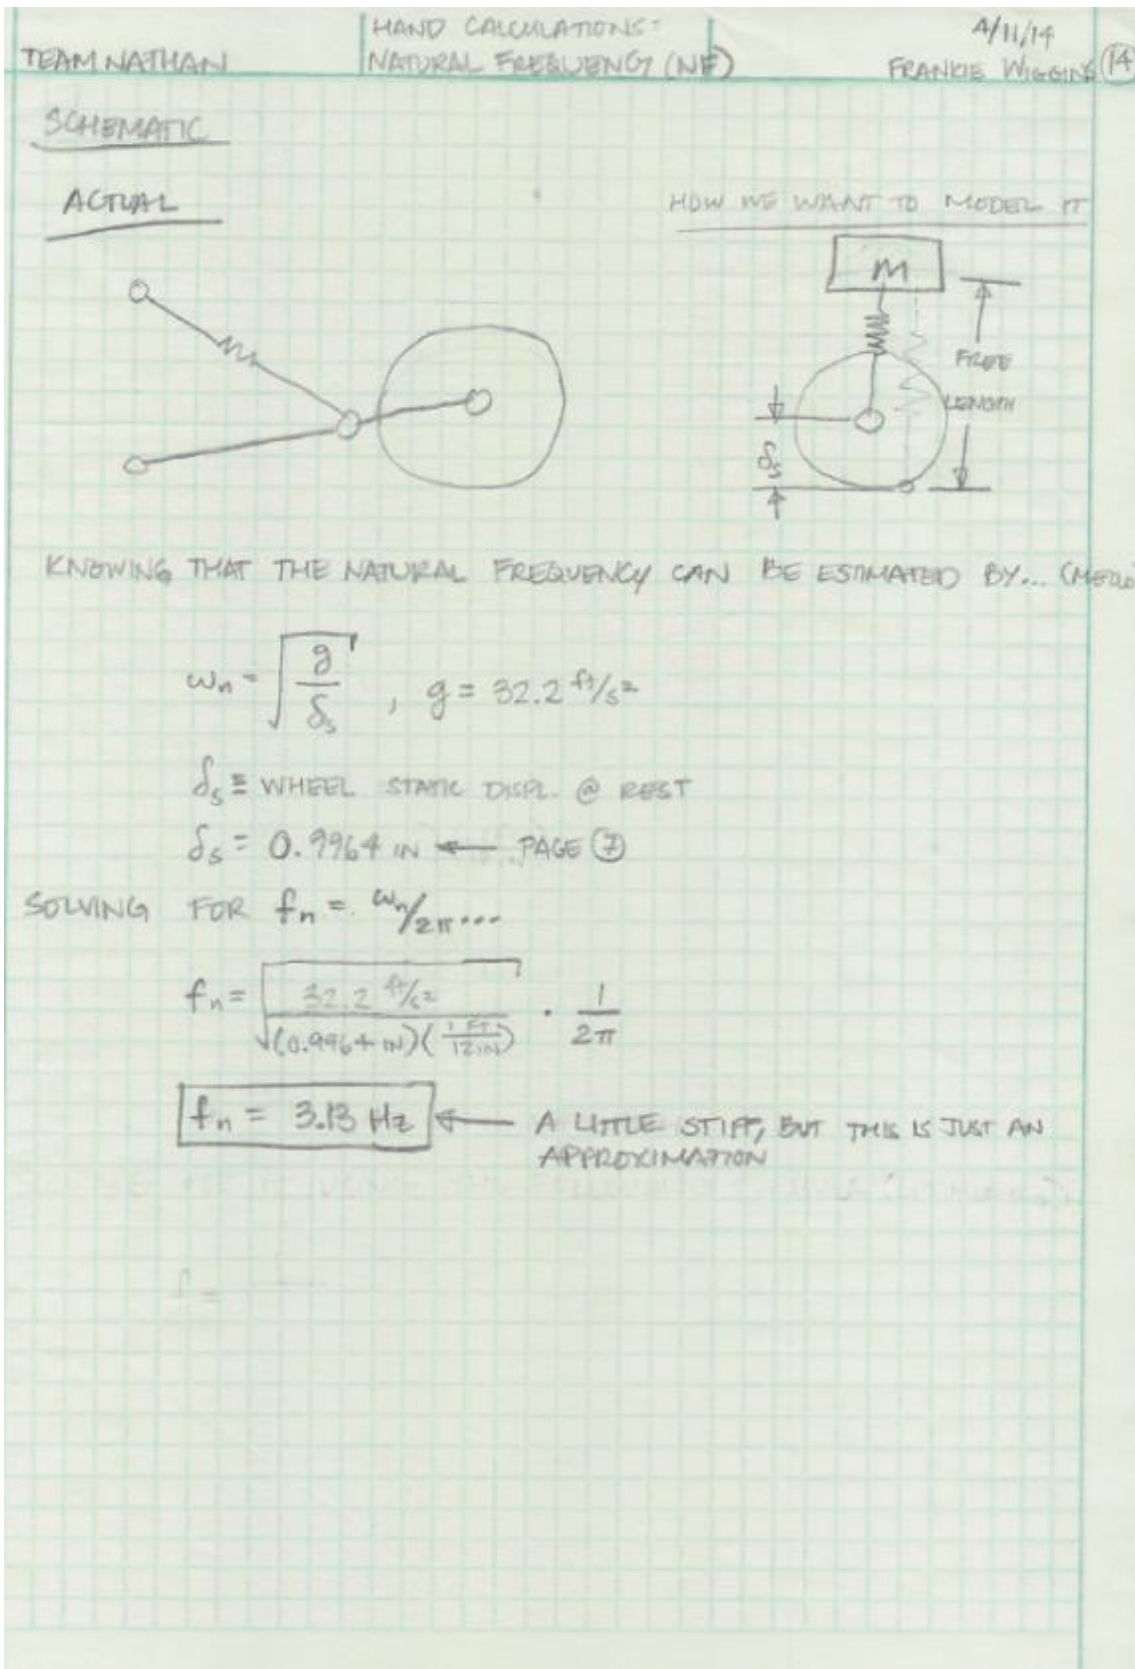 TEAM NATHAN
HAND CALCULATIONS:
NATURAL FREQUENCY (NF)
4/11/14
FRANKIE WIGGINS 14
SCHEMATIC
ACTUAL
HOW WE WANT TO MODEL IT
M
FREE
LENGTH
δs
KNOWING THAT THE NATURAL FREQUENCY CAN BE ESTIMATED BY...
ωn = √(g/δs) , g = 32.2 ft/s²
δs ≡ WHEEL STATIC DISPL. @ REST
δs = 0.9964 IN ← PAGE 7
SOLVING FOR fn = ωn/2π...
fn = √(32.2 ft/s² / (0.9964 IN)(1 FT/12 IN)) · 1/2π
fn = 3.13 Hz ← A LITTLE STIFF, BUT THIS IS JUST AN
APPROXIMATION